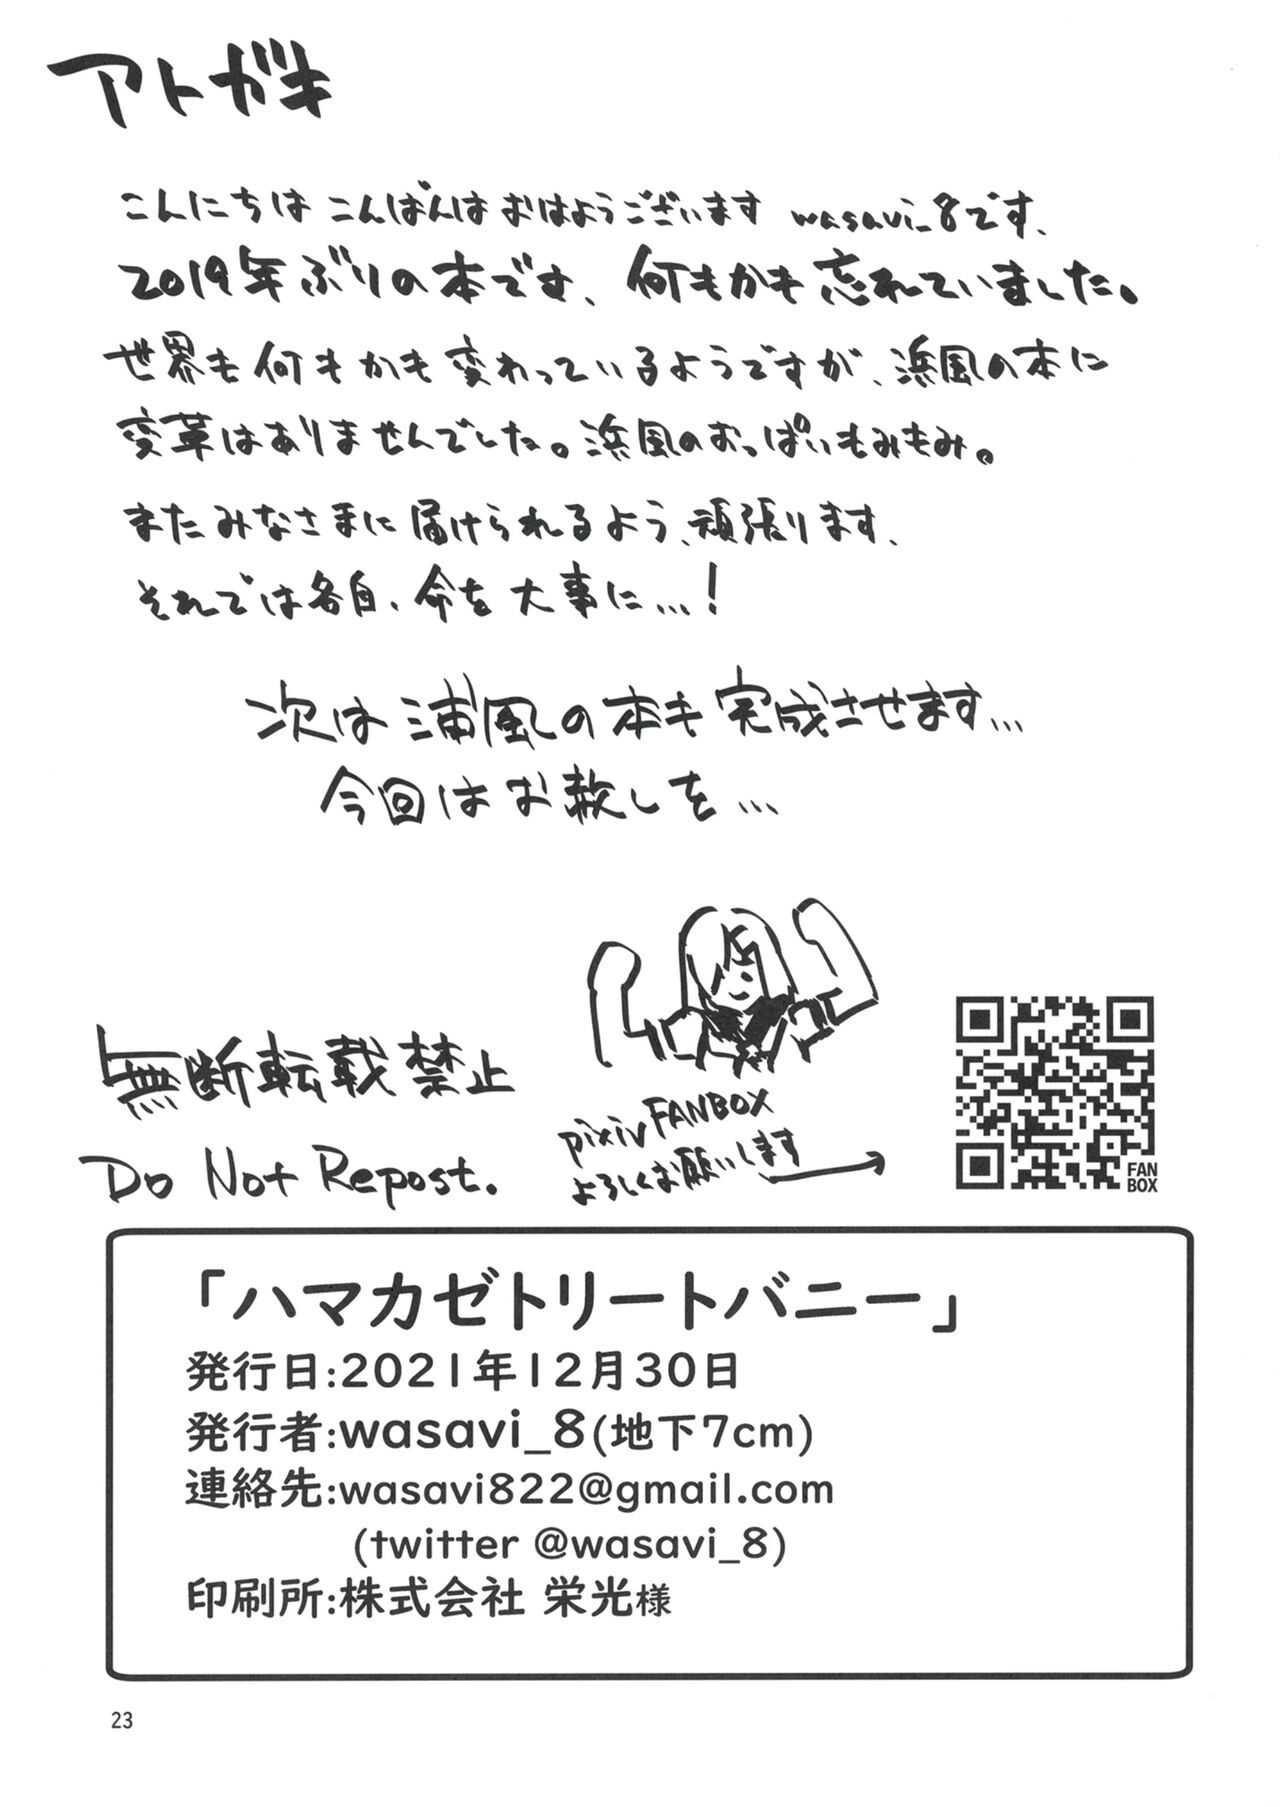 アトガキ
こんにちは こんばんは おはようございます wasavi_8です、
2019年ぶりの本です、何もかも忘れていました。
世界も何もかも変わっているようですが、浜風の本に
変革はありませんでした。浜風のおっぱいもみもみ。
またみなさまに届けられるよう、頑張ります、
それでは各自、命を大事に...!
次は浦風の本も完成させます...
今回はお赦しを...
無断転載禁止
Do Not Repost.
pixivFANBOX
よろしくお願いします
FAN
BOX
「ハマカゼトリートバニー」
発行日:2021年12月30日
発行者:wasavi_8(地下7cm)
連絡先:wasavi822@gmail.com
(twitter @wasavi_8)
印刷所:株式会社 栄光様
23